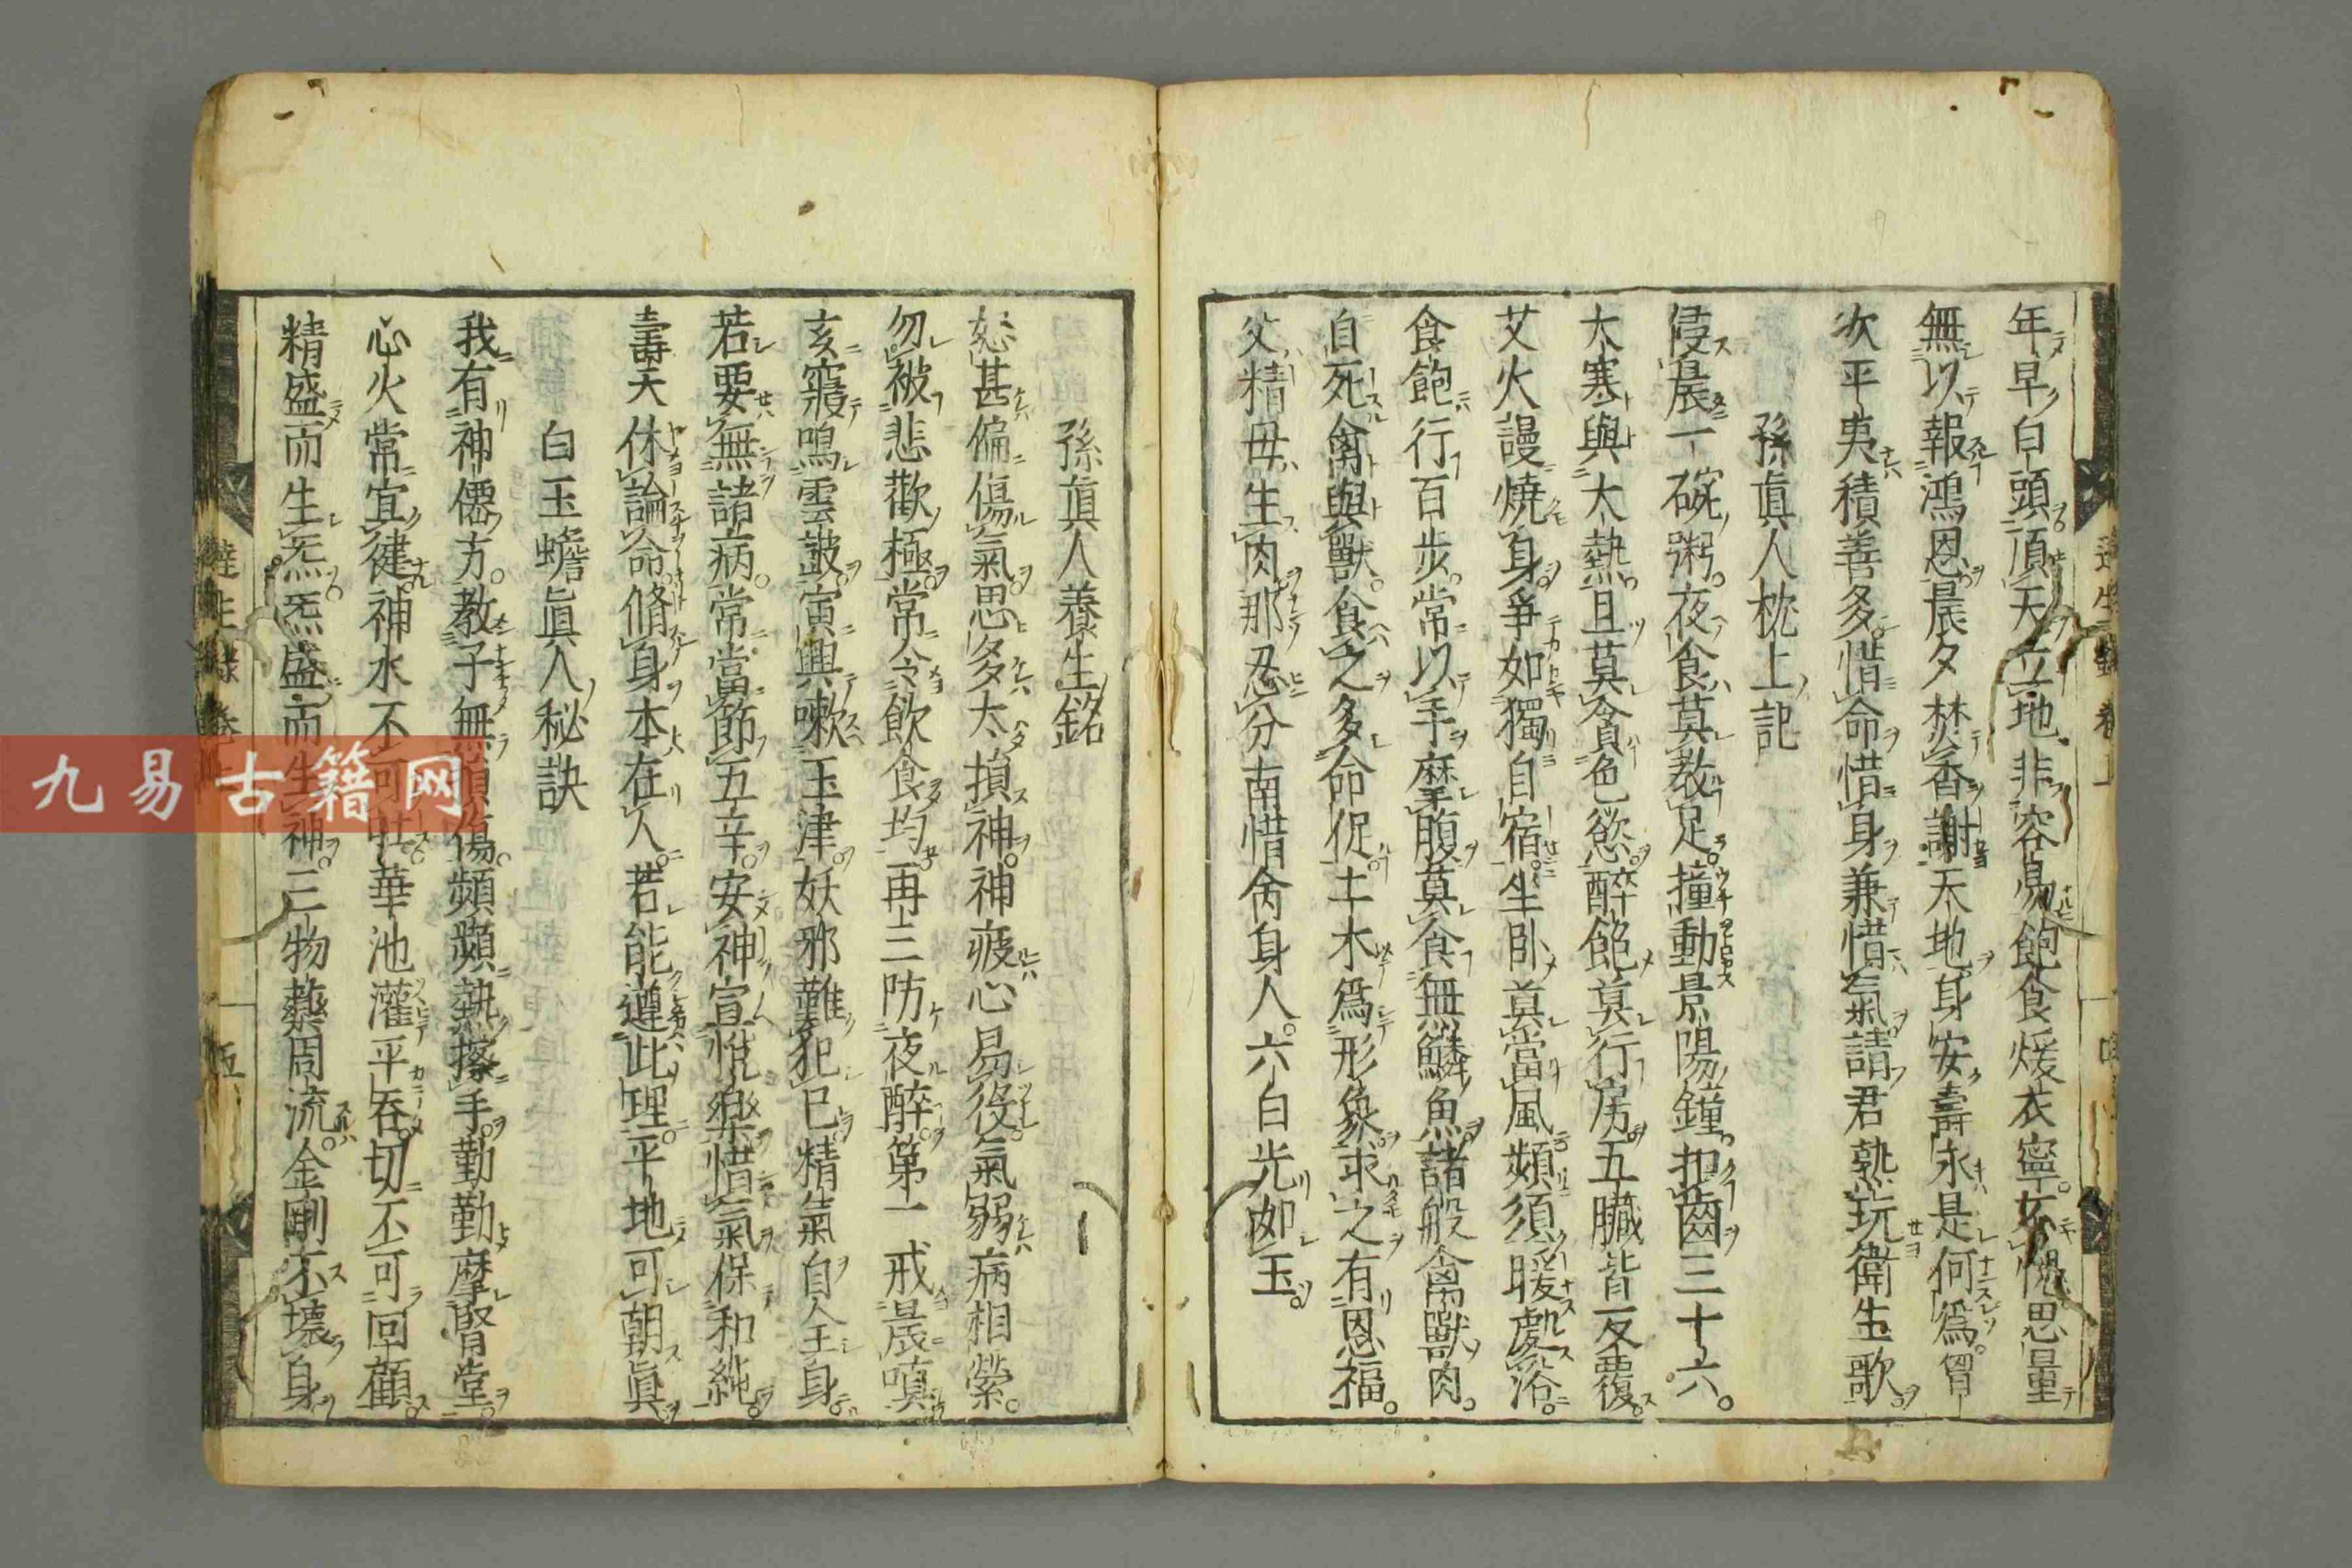 年早白頭頂天立地非容易飽食煖衣寧不愧思量
無以報鴻恩晨夕焚香謝天地身安壽永是何爲胷
次平夷積善多惜命惜身兼惜氣請君熟玩衛生歌
孫眞人枕上記
侵晨一碗粥夜食莫教足撞動景陽鐘扣齒三十六
大寒與大熱且莫貪色慾醉飽莫行房五臟皆反覆
艾火謾燒身爭如獨自宿坐臥莫當風頻須暖處浴
食飽行百步常以手摩腹莫食無鱗魚諸般禽獸肉
自死禽與獸食之多命促土木爲形象求之有恩福
父精母生肉那忍分南惜命身人六白光如玉
孫眞人養生銘
怒甚偏傷氣思多太損神神疲心易役氣弱病相縈
勿被悲歡極常令飲食均再三防夜醉第一戒晨嗔
亥寢鳴雲鼓寅興嗽玉津妖邪難犯已精氣自全身
若要無諸病常當節五辛安神宣悅樂惜氣保和純
壽夭休論命脩身本在人若能遵此理平地可朝眞
白玉蟾眞人秘訣
我有神僊方教子無損傷頻頻熱擦手勤勤摩腎堂
心火常宜健神水不可 華池灌平吞切不可回顧
精盛而生炁炁盛而生神三物藥周流金剛不壞身
達生錄卷上
五
九易古籍网